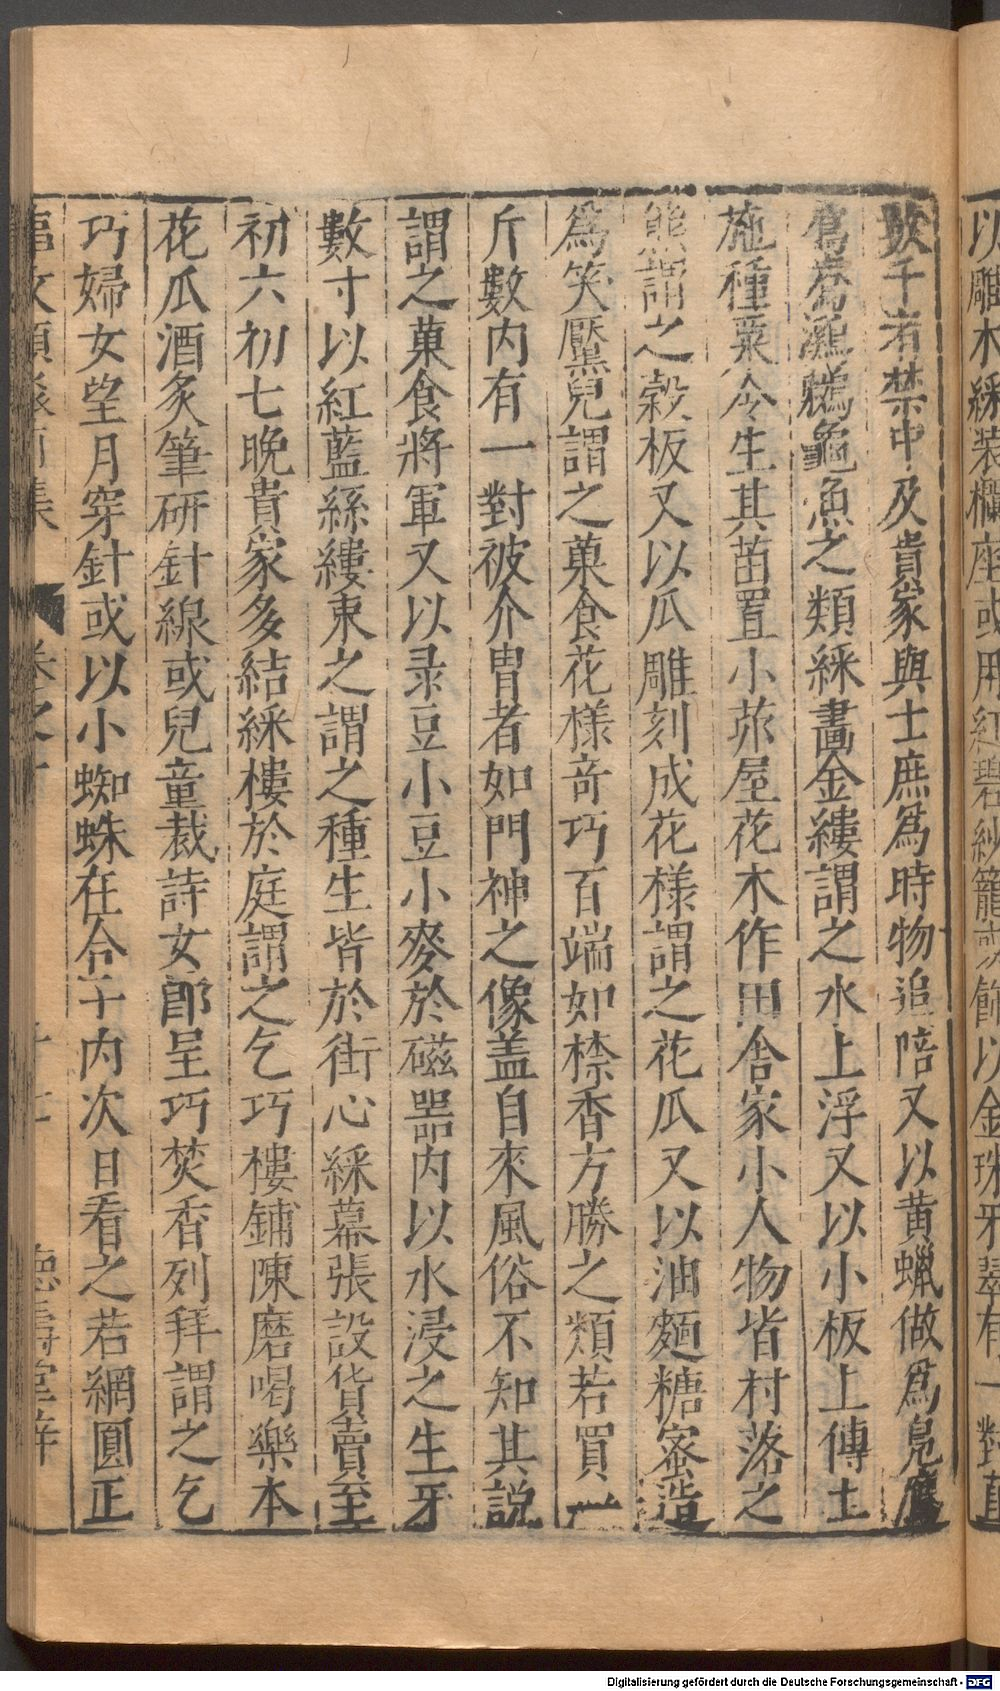 以雕木綵装欄座或用紅碧紗籠或飾以金珠牙翠有一對直
數千者禁中及貴家與士庶爲時物追陪又以黄蠟做爲鳬鴈
鴛鴦鸂鶒龜魚之類綵畫金縷謂之水上浮又以小板上傅土
施種粟令生其苗置小茅屋花木作田舎家小人物皆村落之
態謂之穀板又以瓜雕刻成花樣謂之花瓜又以油麵糖蜜造
爲笑靨兒謂之菓食花樣竒巧百端如㯲香方勝之類若買一
斤數内有一對被介冑者如門神之像盖自來風俗不知其説
謂之菓食將軍又以菉豆小豆小麥於磁器内以水浸之生牙
數寸以紅藍絲縷束之謂之種生皆於街心綵幕張設貨賣至
初六初七晚貴家多結綵樓於庭謂之乞巧樓鋪陳磨喝樂本
花瓜酒炙筆研針線或兒童裁詩女郎呈巧焚香列拜謂之乞
巧婦女望月穿針或以小蜘蛛在合子内次日看之若網圓正
事文類聚前集 卷之十 十七 德壽堂梓
Digitalisierung gefördert durch die Deutsche Forschungsgemeinschaft - DFG